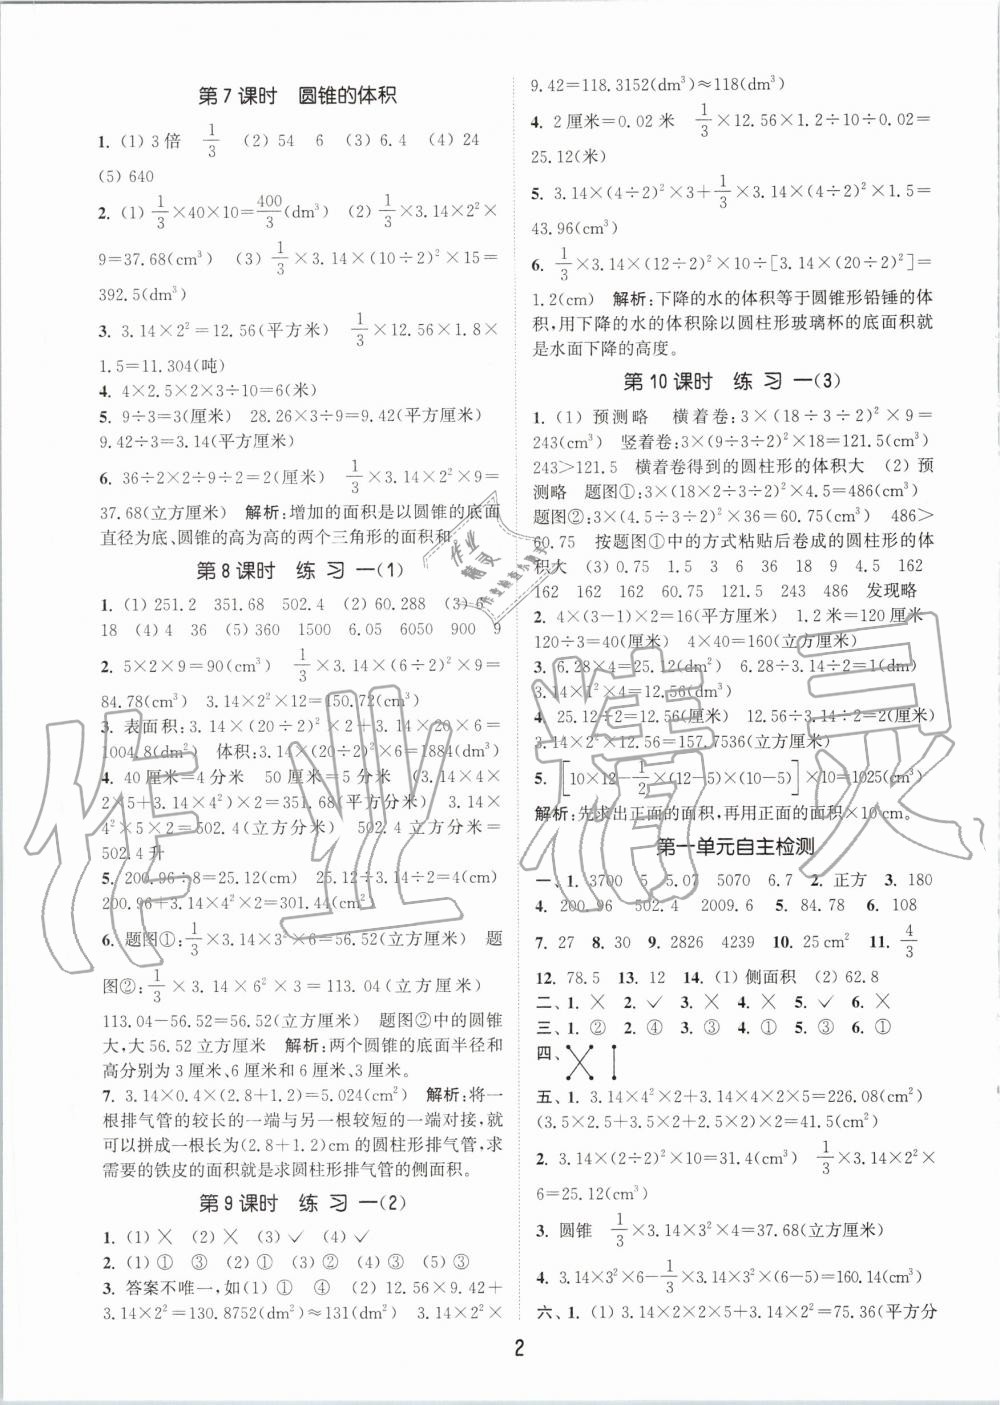 第7课时 圆锥的体积
1. (1)3倍 1/3 (2)54 6 (3)6.4 (4)24
(5)640
2. (1) 1/3×40×10=400/3(dm³) (2) 1/3×3.14×2²×
9=37.68(cm³) (3) 1/3×3.14×(10÷2)²×15=
392.5(dm³)
3. 3.14×2²=12.56(平方米) 1/3×12.56×1.8×
1.5=11.304(吨)
4. 4×2.5×2×3÷10=6(cm)
5. 9÷3=3(厘米) 28.26×3÷9=9.42(平方厘米)
9.42÷3=3.14(平方厘米)
6. 36÷2×2÷9÷2=2(厘米) 1/3×3.14×2²×9=
37.68(立方厘米) 解析:增加的面积是以圆锥的底面
直径为底、圆锥的高为高的两个三角形的面积和
第8课时 练习一(1)
1. (1)251.2 351.68 502.4 (2)60.288 (3)6
18 (4)4 36 (5)360 1500 6.05 6050 900 9
2. 5×2×9=90(cm³) 1/3×3.14×(6÷2)²×9=
84.78(cm³) 3.14×2²×12=150.72(cm³)
3. 表面积:3.14×(20÷2)²×2+3.14×20×6=
1004.8(dm²) 体积:3.14×(20÷2)²×6=1884(dm³)
4. 40厘米=4分米 50厘米=5分米 (3.14×4×
2×5+3.14×4²)×2=351.68(平方分米) 3.14×
4²×5×2=502.4(立方分米) 502.4立方分米=
502.4升
5. 200.96÷8=25.12(cm) 25.12÷3.14÷2=4(cm)
200.96+3.14×4²×2=301.44(cm²)
6. 题图①:1/3×3.14×3²×6=56.52(立方厘米) 题
图②:1/3×3.14×6²×3=113.04(立方厘米)
113.04-56.52=56.52(立方厘米) 题图②中的圆锥
大,大56.52立方厘米 解析:两个圆锥的底面半径和
高分别为3厘米、6厘米和6厘米、3厘米。
7. 3.14×0.4×(2.8+1.2)=5.024(cm²) 解析:将一
根排气管的较长的一端与另一根较短的一端对接,就
可以拼成一根长为(2.8+1.2)cm的圆柱形排气管,求
需要的铁皮的面积就是求圆柱形排气管的侧面积。
第9课时 练习一(2)
1. (1)× (2)× (3)✓ (4)✓
2. (1)① ③ (2)① (3)② (4)③ (5)③
3. 答案不唯一,如(1)① ④ (2)12.56×9.42+
3.14×2²=130.8752(dm²)≈131(dm²) 3.14×2²×
9.42=118.3152(dm³)≈118(dm³)
4. 2厘米=0.02米 1/3×12.56×1.2÷10÷0.02=
25.12(米)
5. 3.14×(4÷2)²×3+1/3×3.14×(4÷2)²×1.5=
43.96(cm³)
6. 1/3×3.14×(12÷2)²×10÷[3.14×(20÷2)²]=
1.2(cm) 解析:下降的水的体积等于圆锥形铅锤的体
积,用下降的水的体积除以圆柱形玻璃杯的底面积就
是水面下降的高度。
第10课时 练习一(3)
1. (1) 预测略 横着卷:3×(18÷3÷2)²×9=
243(cm³) 竖着卷:3×(9÷3÷2)²×18=121.5(cm³)
243>121.5 横着卷得到的圆柱形的体积大 (2) 预
测略 题图①:3×(18×2÷3÷2)²×4.5=486(cm³)
题图②:3×(4.5÷3÷2)²×36=60.75(cm³) 486>
60.75 按题图①中的方式粘贴后卷成的圆柱形的体
积大 (3)0.75 1.5 3 6 18 9 4.5 162
162 162 162 60.75 121.5 243 486 发现略
2. 4×(3-1)×2=16(平方厘米) 1.2米=120厘米
120÷3=40(厘米) 4×40=160(立方厘米)
3. 6.28×4=25.12(dm²) 6.28÷3.14÷2=1(dm)
3.14×1²×4=12.56(dm³)
4. 25.12÷2=12.56(厘米) 12.56÷3.14÷2=2(厘米)
3.14×2²×12.56=157.7536(立方厘米)
5. [10×12-1/2×(12-5)×(10-5)]×10=1025(cm³)
解析:先求出正面的面积,再用正面的面积×10 cm。
第一单元自主检测
一、1. 3700 5 5.07 5070 6.7 2. 正方 3. 180
4. 200.96 502.4 2009.6 5. 84.78 6. 108
7. 27 8. 30 9. 2826 4239 10. 25 cm² 11. 4/3
12. 78.5 13. 12 14. (1) 侧面积 (2) 62.8
二、1. × 2. ✓ 3. × 4. × 5. ✓ 6. ×
三、1. ② 2. ④ 3. ③ 4. ① 5. ③ 6. ①
四、
五、1. 3.14×4²×2+3.14×4×2×5=226.08(cm²)
(3.5×2.5+3.5×2+2.5×2)×2=41.5(cm²)
2. 3.14×(2÷2)²×10=31.4(cm³) 1/3×3.14×2²×
6=25.12(cm³)
3. 圆锥 1/3×3.14×3²×4=37.68(立方厘米)
4. 3.14×3²×6-1/3×3.14×3²×(6-5)=160.14(cm³)
六、1. (1) 3.14×2×2×5+3.14×2²=75.36(平方分
2
作业精灵
作业精灵